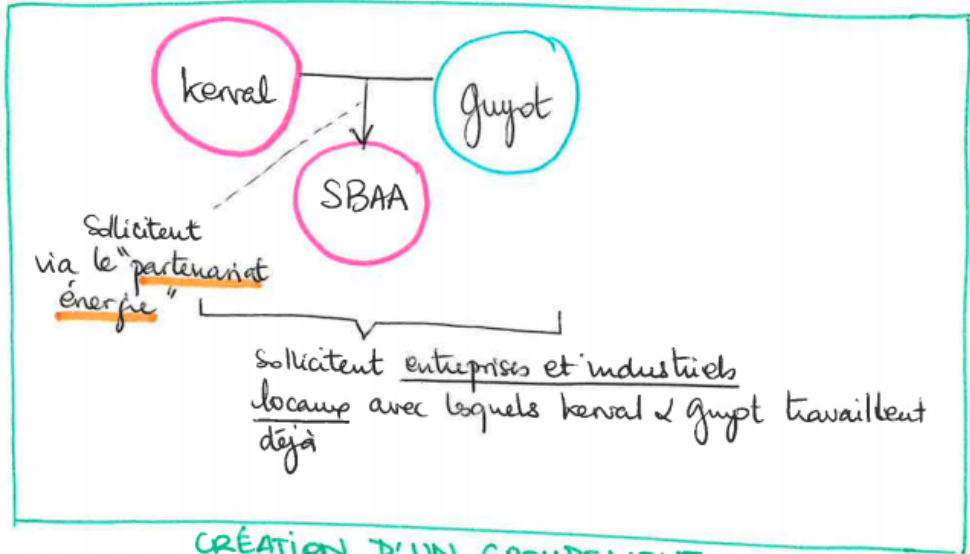 kerval
Guyot
SBAA
Sollicitent
via le "partenariat
énergie"
Sollicitent entreprises et industriels
locaux avec lesquels kerval & Guyot travaillent
déjà
CRÉATION D'UN GROUPEMENT